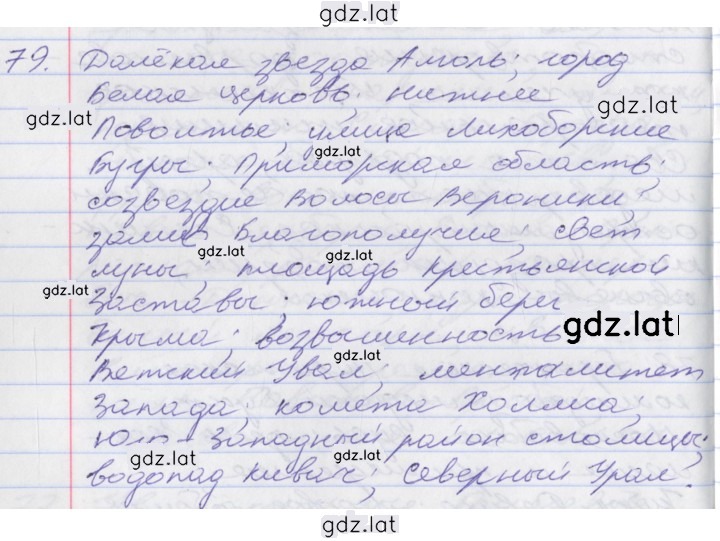 gdz.lat
79. Далёкая звезда Амоль; город
Белая Церковь; нижнее
gdz.lat
gdz.lat
Поволжье; улица Лихоборские
gdz.lat
Бугры; Приморская область;
созвездие Волосы Вероники;
залив Благополучие; свет
gdz.lat
gdz.lat
луны; площадь Крестьянской
gdz.lat
Заставы; южный берег
Крыма; возвышенность
gdz.lat
gdz.lat
Вятский Увал; менталитет
Запада; комета Холмса;
Юго-Западный район столицы;
gdz.lat
gdz.lat
водопад Кивач; Северный Урал.
gdz.lat